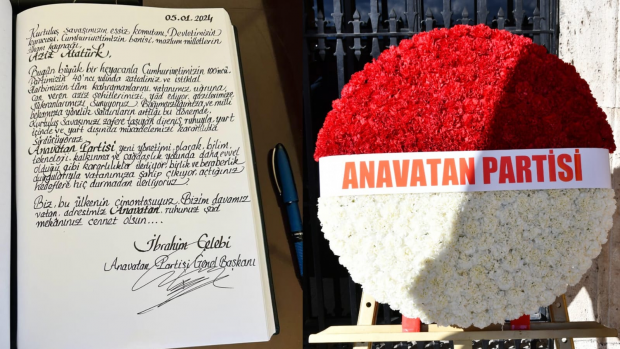 05.01.2024
Kurtuluş Savaşımızın essiz komutanı, Devletimizin
kurucusu, Cumhuriyetimizin banisi, mazlum milletlerin
ilham kaynağı
Aziz Atatürk,
Bugün büyük bir heyecanla Cumhuriyetimizin 100'ncü,
Partimizin 40'ncı yılında zatıdeniz ve istiklal
harbimizin tüm kahramanlarını, vatanımız uğruna
can veren aziz şehitlerimizi yad ediyor, gazilerimize
şükranlarımızı sunuyoruz. Bağımsızlığımıza ve milli
bekamıza yönelik saldırıların arttığı bu dönemde,
Kurtuluş Savaşımızı zafere taşıyan direniş ruhuyla, yurt
içinde ve yurt dışında mücadelemizi kararlılıkla
sürdürüyoruz.
Anavatan Partisi yeni yönetimi olarak, bilim,
teknoloji, kalkınma ve çağdaşlık yolunda daha evvel
olduğu gibi kararlılıkla ilerliyor; birlik ve beraberlik
duygularıyla vatanımıza sahip çıkıyor, açtığınız
hedeflere hiç durmadan ilerliyoruz.
Biz, bu ülkenin çimentosuyuz. Bizim davamız
vatan, adresimiz Anavatan, ruhunuz şad
mekânınız cennet olsun....
İbrahim Çelebi
Anavatan Partisi Genel Başkanı
ANAVATAN PARTİSİ